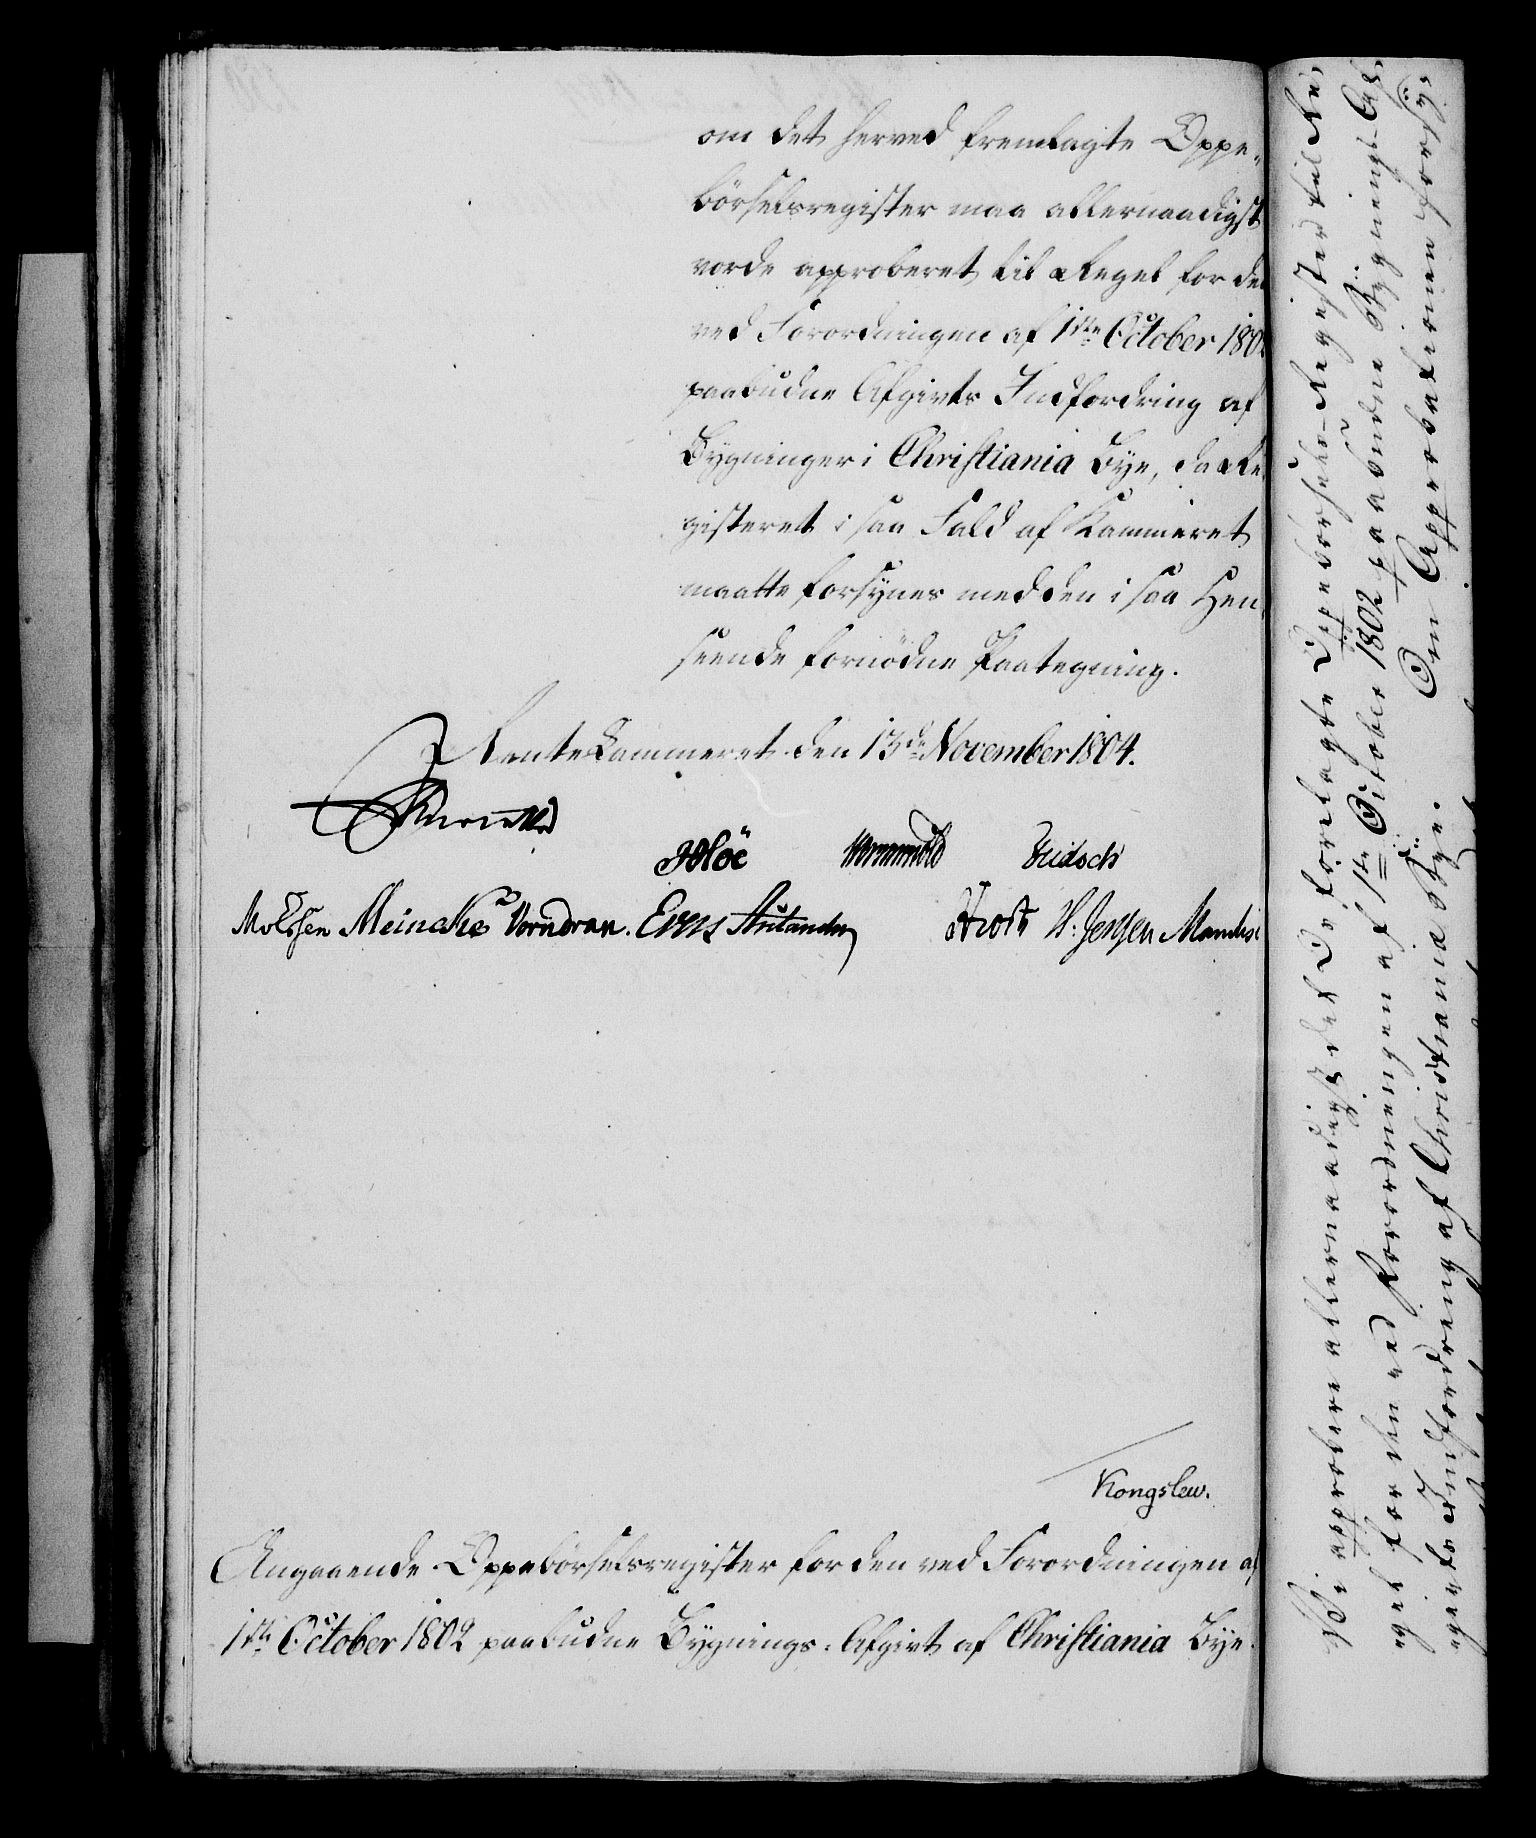 om det herved fremlagte Oppe-
börselsregister maa allernaadigst
vorde approberet til Regel for den
ved Forordningen af 1ste October 1802
paabudne Afgivts Indfordring af
Bygninger i Christiania Bye, da Re-
gisteret i saa Fald af Kammeret
maatte forsynes med den i saa Hen-
seende fornödne Paategning.
RenteKammeret den 13de November 1804.
Wormskiold
Meincke Vorndran.
H. Jessen
Kongslew.
Angaaende Oppebörselsregister for den ved Forordningen af
1ste October 1802 paabudne Bygnings-Afgivt af Christiania Bye.
Vi approbere allernaadigst det forelagte Oppebörsels-Register til Re-
gel for den ved Forordningen af 1ste October 1802 paabudne Bygnings-Af-
givts Indfordring af Christiania Bye. Om Approbationen